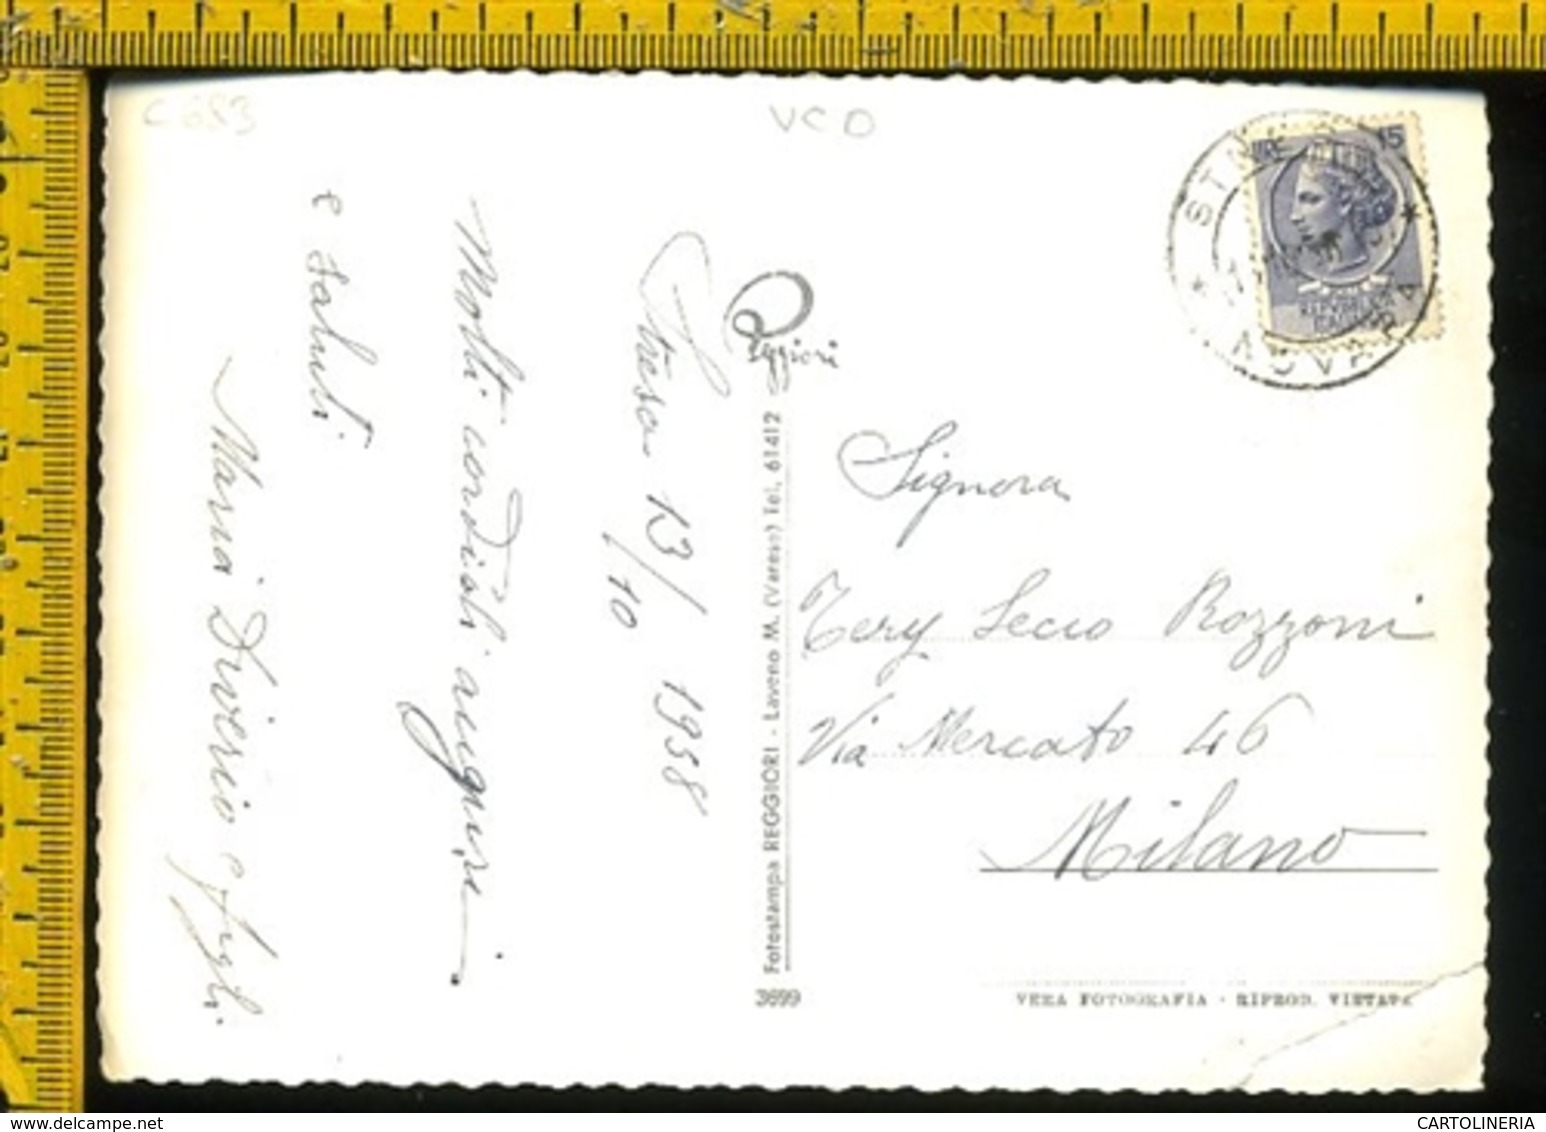 C 683
VCD
Stresa 13/10 1958
Molti cordiali auguri
e saluti
Maria Diverio e figli
Reggiori
Fotostampa REGGIORI - Laveno M. (Varese) Tel. 61412
3699
LIRE 15
STRESA
NOVARA
Signora
Tery Secco Rozzoni
Via Mercato 46
Milano
VERA FOTOGRAFIA - RIPROD. VIETATA
www.delcampe.net
CARTOLINERIA